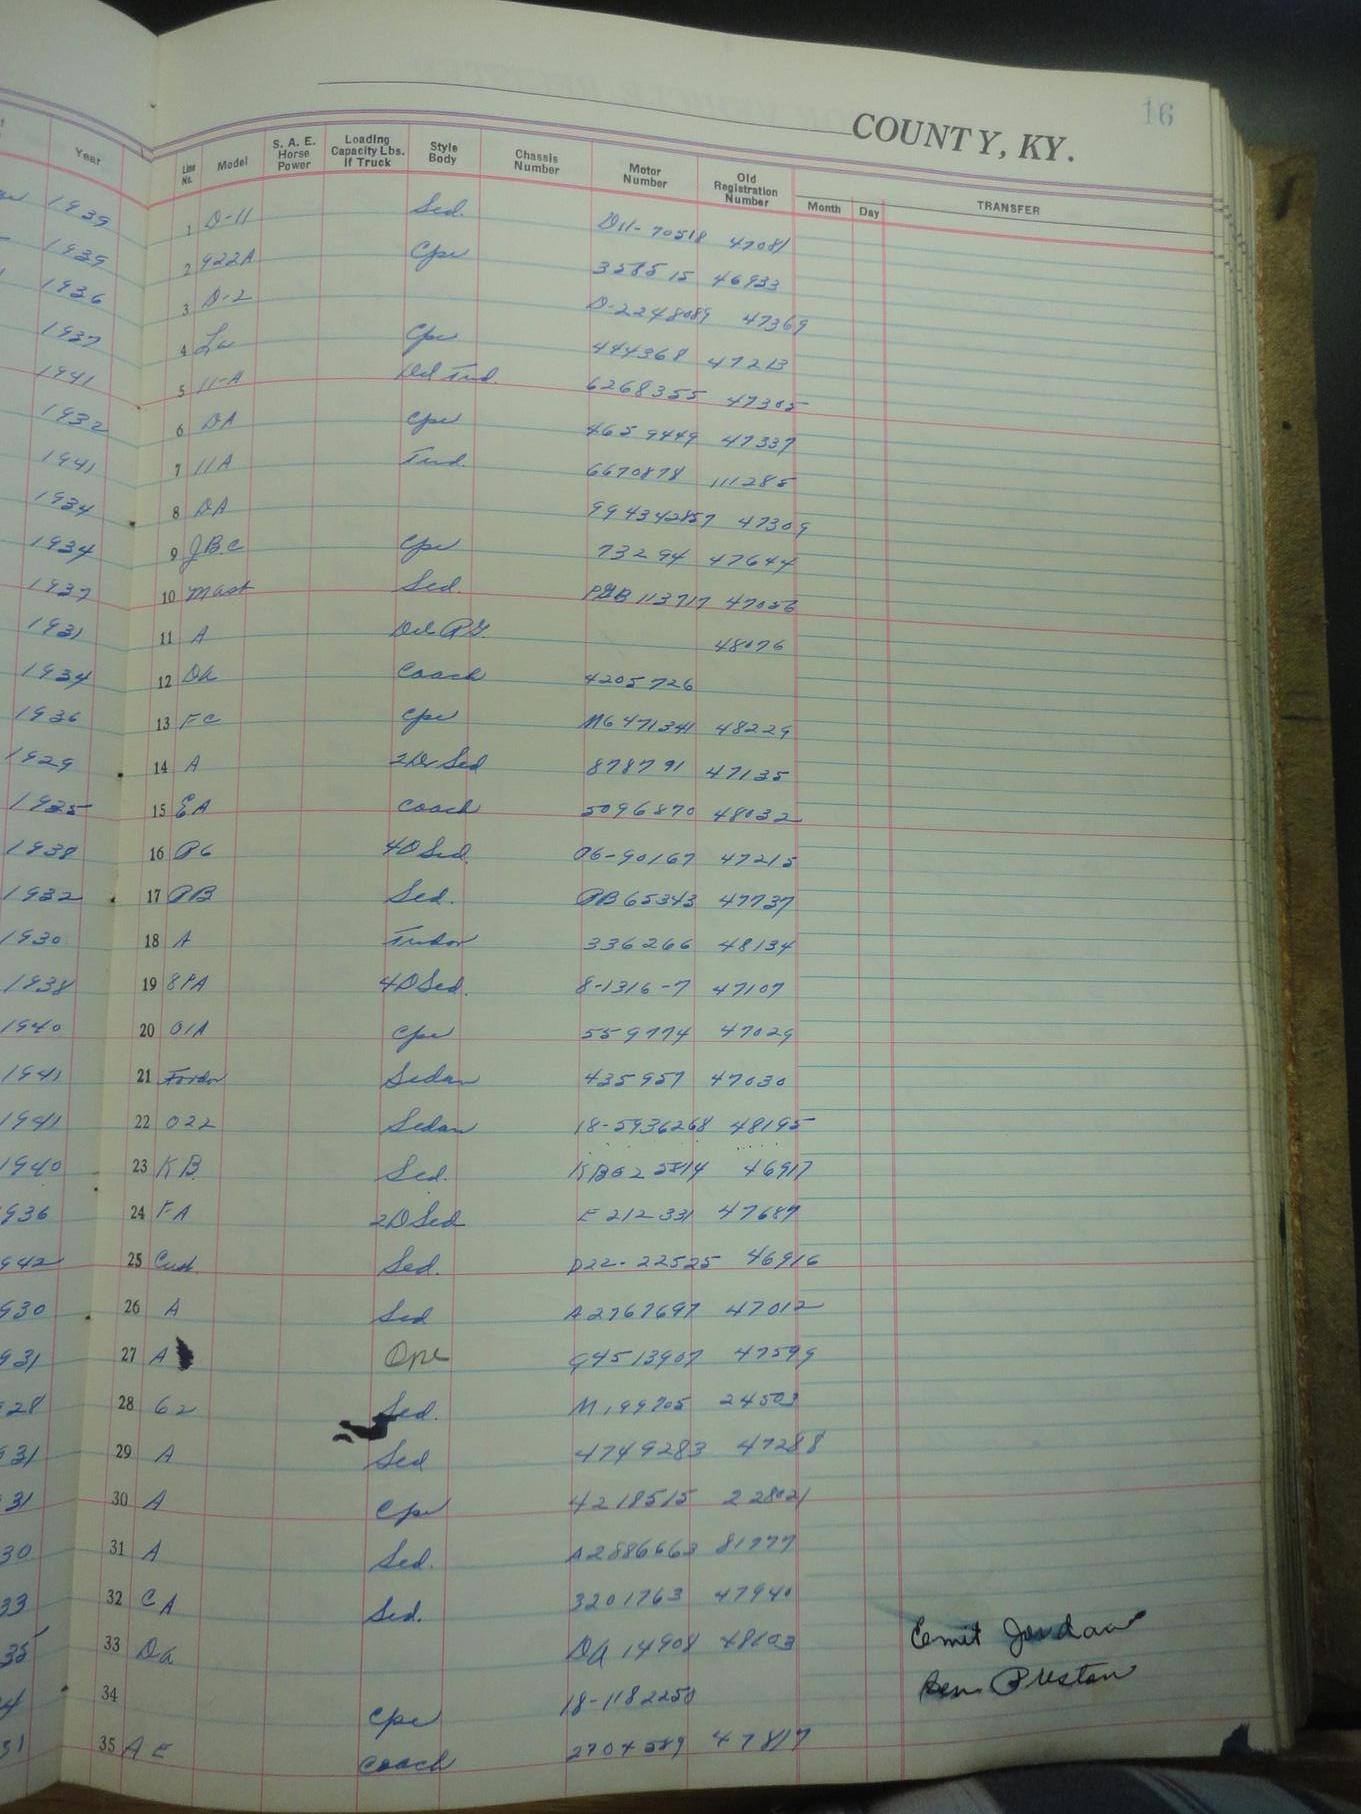 16
COUNTY, KY.
Year Line No. Model S. A. E. Horse Power Loading Capacity Lbs. if Truck Style Body Chassis Number Motor Number Old Registration Number Month Day TRANSFER
1939 1 D-11 Sed. D11-70518 47081
1939 2 922A Cpe 358515 46933
1936 3 D-2 D-2248089 47369
1937 4 Cpe 444368 47213
1941 5 11-A Del Tud. 6268355 47305
1932 6 DA Cpe 4659449 47337
1941 7 11A Tud. 6670878 111285
1934 8 DA 994342857 47309
1934 9 JBC Cpe 73294 47644
1937 10 Mast Sed. 113717 47056
1931 11 A Del 48076
1934 12 Da Coach 4205726
1936 13 FC Cpe M6471341 48229
1929 14 A 2Dr Sed 878791 47135
1935 15 EA Coach 5096870 48032
1938 16 P6 4D Sed. 06-90167 47215
1932 17 PB Sed. PB65343 47737
1930 18 A Tudor 336266 48134
1938 19 8PA 4D Sed. 8-1316-7 47107
1940 20 01A Cpe 559774 47029
1941 21 Fordor Sedan 435957 47030
1941 22 022 Sedan 18-5936268 48195
1940 23 KB. Sed. KB025814 46917
936 24 FA 2D Sed E212331 47687
942 25 Cus. Sed. D22-22525 46916
930 26 A Sed A2767697 47012
931 27 A Cpe 94513907 47599
28 28 62 Sed. M199705 24503
931 29 A Sed 4749283 47288
31 30 A Cpe 4218515 228021
30 31 A Sed. A2886663 81777
33 32 CA Sed. 3201763 47940
35 33 Da DA 14908 48103 Jordan
4 34 Cpe 18-1182250 Ben Preston
31 35 AE Coach 2704589 47817